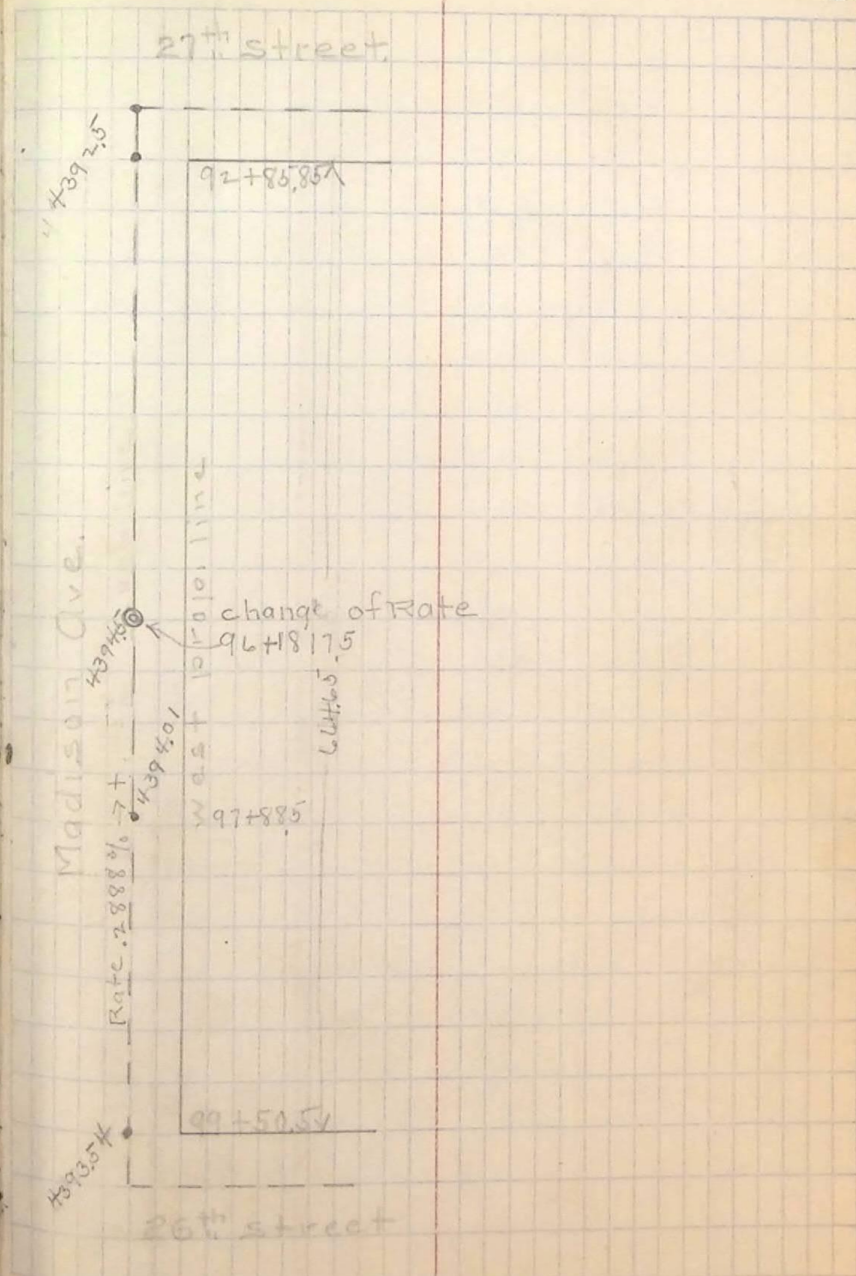 27th Street
4392.5
92+85.85
Madison Ave.
West prop. line
4394.5
change of Rate
96+18.175
664.65
4394.01
97+88.5
Rate .2888% → +
99+50.5
4393.54
26th Street